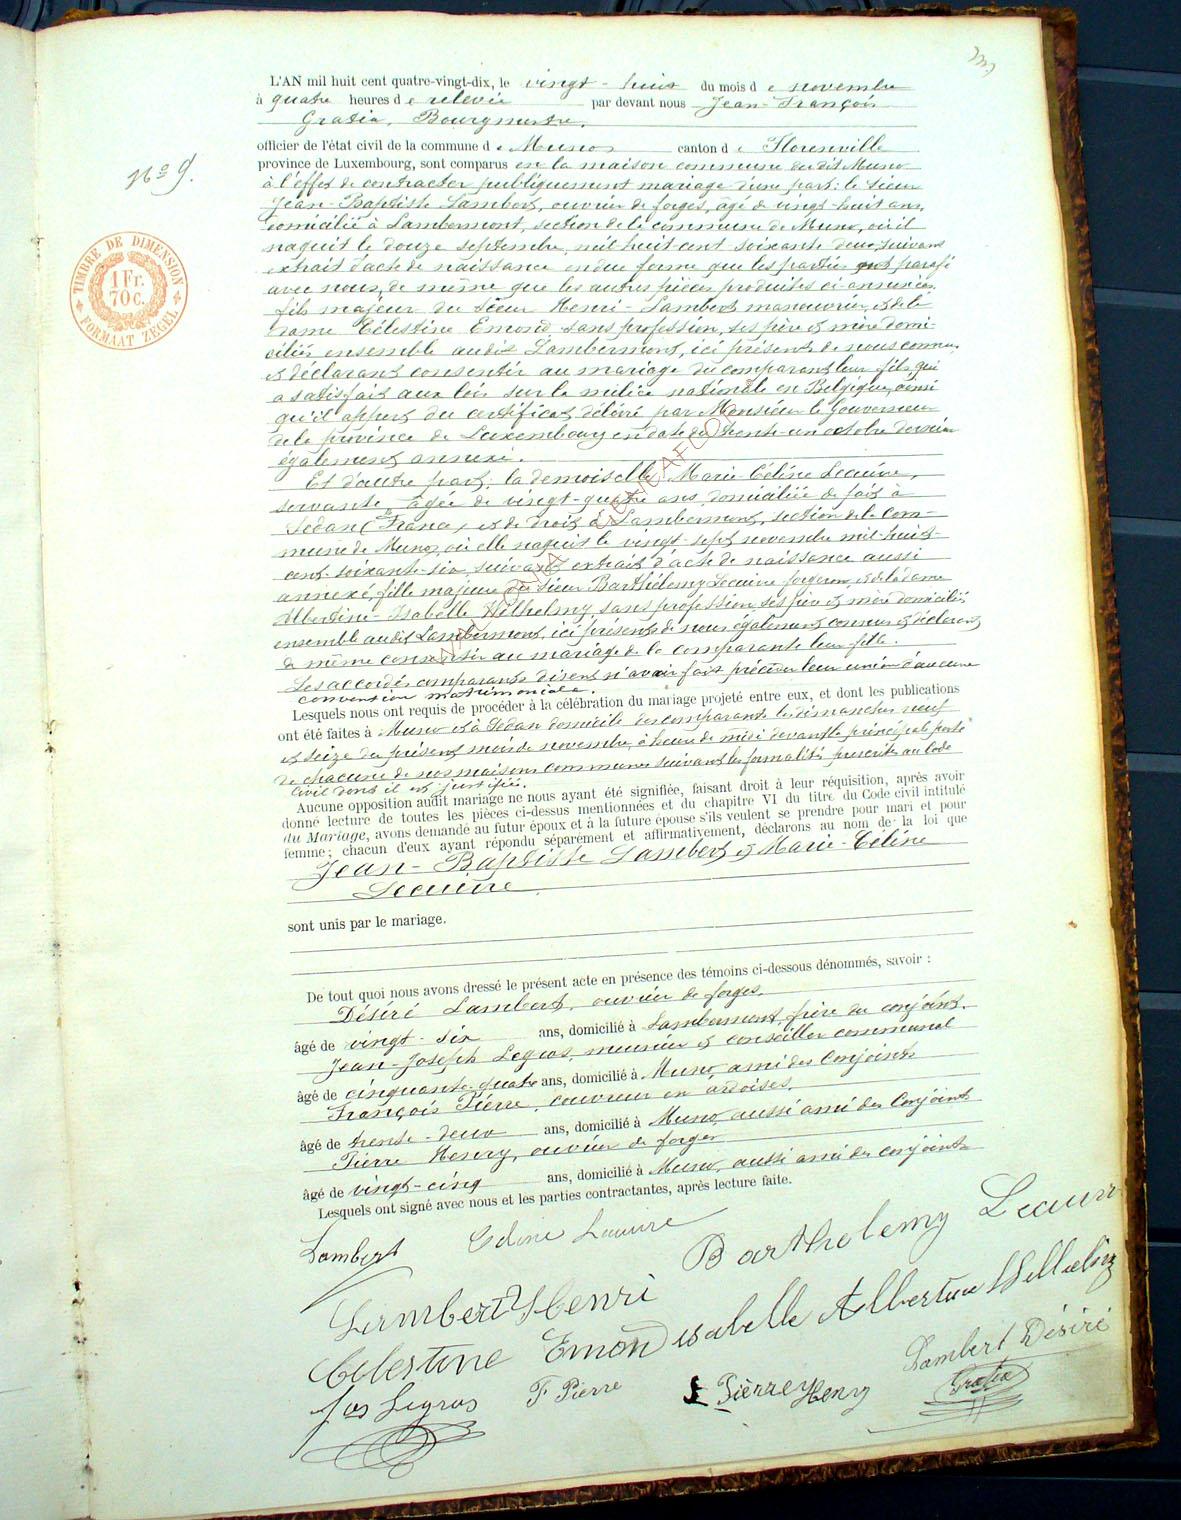 L'AN mil huit cent quatre-vingt-dix, le vingt-huit du mois de novembre
à quatre heures de relevée par devant nous Jean-François
Gratia, Bourgmestre.
officier de l'état civil de la commune de Muno canton de Florenville
province de Luxembourg, sont comparus en la maison commune du dit Muno
à l'effet de contracter publiquement mariage d'une part: le sieur
Jean-Baptiste Lambert, ouvrier de forges, âgé de vingt-huit ans,
domicilié à Lambermont, section de la commune de Muno, où il
naquit le douze septembre mil huit cent soixante deux, suivant
extrait d'acte de naissance en due forme que les parties ont parafé
avec nous, de même que les autres pièces produites ci-annexées,
fils majeur du sieur Henri Lambert manouvrier, et de la
dame Célestine Emond sans profession, ses père et mère domi-
ciliés ensemble audit Lambermont, ici présents de nous connus
et déclarant consentir au mariage du comparant leur fils qui
a satisfait aux lois sur la milice nationale en Belgique, ainsi
qu'il appert du certificat délivré par Monsieur le Gouverneur
de la province de Luxembourg en date du trente-un octobre dernier
également annexé.
Et d'autre part: la demoiselle Marie Céline Lecuivre,
servante âgée de vingt-quatre ans, domiciliée de fait à
Sedan (France) et de droit à Lambermont, section de la com-
mune de Muno, où elle naquit le vingt sept novembre mil-huit-
cent-soixante-six, suivant extrait d'acte de naissance aussi
annexé, fille majeure du sieur Barthélemy Lecuivre forgeron, et de la dame
Albertine-Isabelle Wilhelmy, sans profession, ses père et mère domiciliés
ensemble audit Lambermont, ici présents de nous également connus et déclarant
de même consentir au mariage de la comparante leur fille.
Les accordés comparants disent n'avoir fait précéder leur union d'aucune
convention matrimoniale.
Lesquels nous ont requis de procéder à la célébration du mariage projeté entre eux, et dont les publications
ont été faites à Muno et à Sedan domicile des comparants les dimanches neuf
et seize du présent mois de novembre à heure de midi devant la principale porte
de chacune de nos maisons communes suivant les formalités prescrites au Code
Civil dont il est justifié.
Aucune opposition audit mariage ne nous ayant été signifiée, faisant droit à leur réquisition, après avoir
donné lecture de toutes les pièces ci-dessus mentionnées et du chapitre VI du titre du Code civil intitulé
du Mariage, avons demandé au futur époux et à la future épouse s'ils veulent se prendre pour mari et pour
femme; chacun d'eux ayant répondu séparément et affirmativement, déclarons au nom de la loi que
Jean-Baptiste Lambert et Marie-Céline
Lecuivre
sont unis par le mariage.
De tout quoi nous avons dressé le présent acte en présence des témoins ci-dessous dénommés, savoir :
Désiré Lambert, ouvrier de forges,
âgé de vingt-six ans, domicilié à Lambermont, frère du conjoint.
Jean-Joseph Legros, meunier et conseiller communal
âgé de cinquante-quatre ans, domicilié à Muno, ami des conjoints
François Pierre, couvreur en ardoises,
âgé de trente-deux ans, domicilié à Muno, aussi ami des conjoints
Pierre Henry, ouvrier de forges
âgé de vingt-cinq ans, domicilié à Muno, aussi ami des conjoints
Lesquels ont signé avec nous et les parties contractantes, après lecture faite.
Lambert Céline Lecuivre Barthelemy Lecuivre
Lambert Henri
Celestine Emond isabelle Albertine Wilhelmy
Jos Legros F Pierre Pierre Henry Lambert Désiré
Gratia
N° 9.
TIMBRE DE DIMENSION
1 Fr.
70 c.
FORMAAT ZEGEL